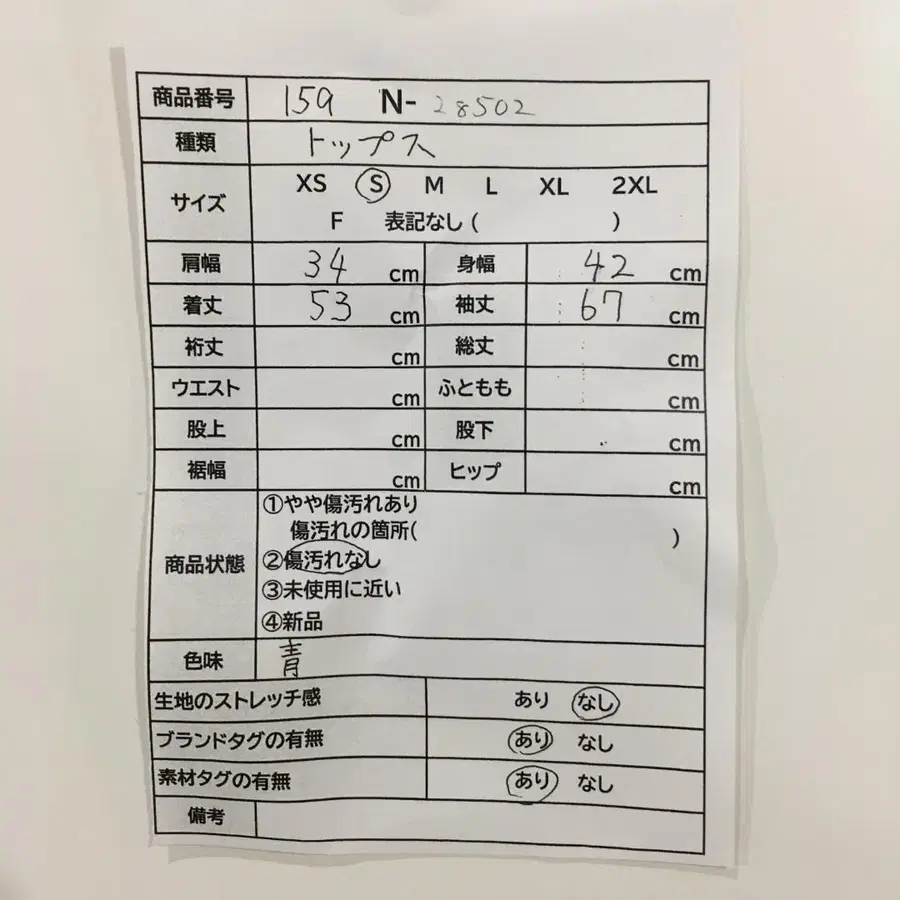 商品番号 159 N-28502
種類 トップス
サイズ XS S M L XL 2XL
F 表記なし( )
肩幅 34 cm 身幅 42 cm
着丈 53 cm 袖丈 67 cm
裄丈 cm 総丈 cm
ウエスト cm ふともも cm
股上 cm 股下 cm
裾幅 cm ヒップ cm
商品状態 ①やや傷汚れあり
傷汚れの箇所( )
②傷汚れなし
③未使用に近い
④新品
色味 青
生地のストレッチ感 あり なし
ブランドタグの有無 あり なし
素材タグの有無 あり なし
備考